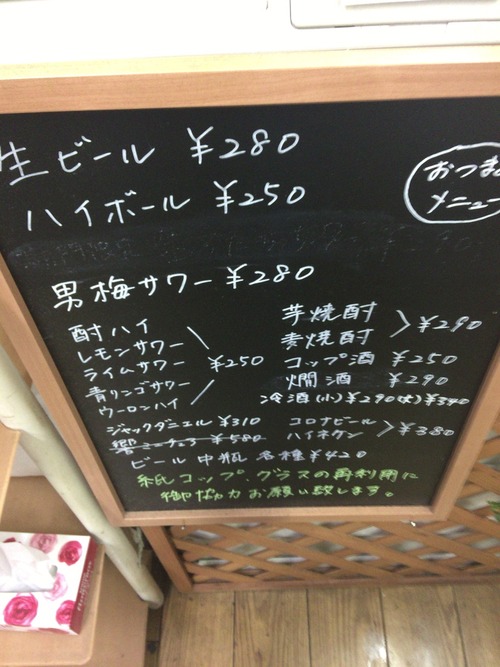 生ビール ¥280
おつま
メニュー
ハイボール ¥250
男梅サワー ¥280
酎ハイ
レモンサワー
ライムサワー ¥250
青リンゴサワー
ウーロンハイ
芋焼酎
麦焼酎 ¥290
コップ酒 ¥250
燗酒 ¥290
冷酒(小)¥290(大)¥340
ジャックダニエル ¥310
響ミニチュア ¥580
コロナビール
ハイネケン ¥380
ビール中瓶各種 ¥420
紙コップ、グラスの再利用に
御協力お願い致します。